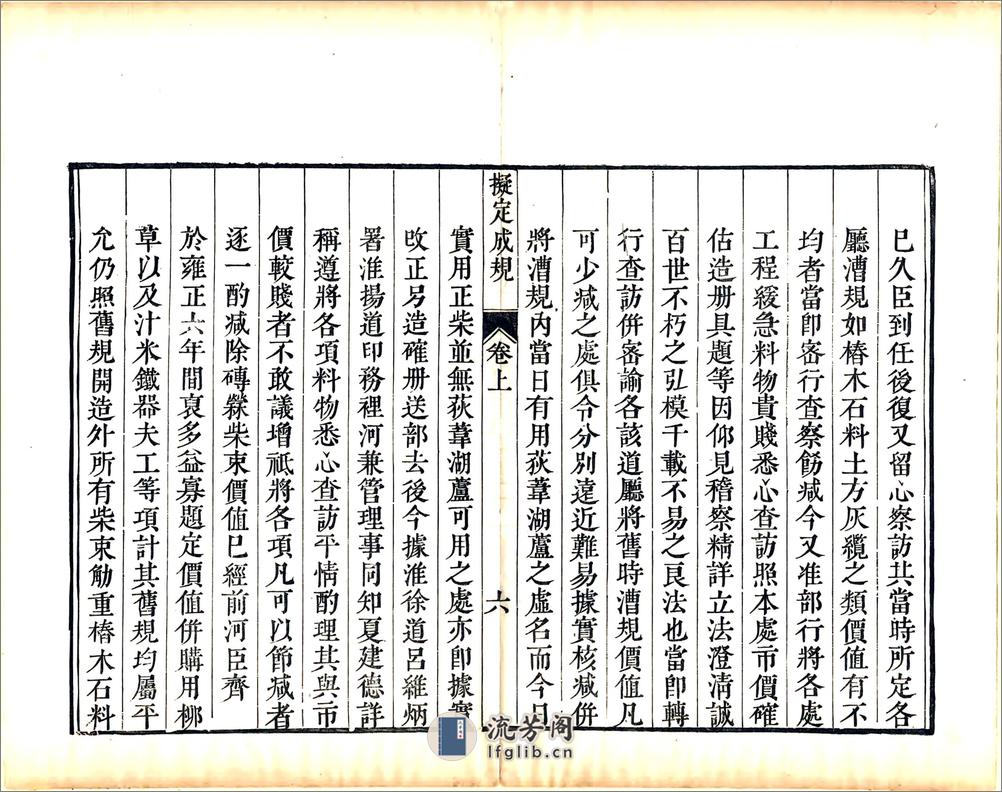 已久臣到任後復又留心察訪其當時所定各
廳漕規如樁木石料土方灰纜之類價值有不
均者當卽審行查察飭減今又准部行將各處
工程緩急料物貴賤悉心查訪照本處市價確
估造册具題等因仰見稽察精詳立法澄淸誠
百世不朽之弘模千載不易之良法也當卽轉
行查訪併審諭各該道廳將舊時漕規價值凡
可少減之處俱令分別遠近難易據實核減併
將漕規內當日有用荻葦湖蘆之虛名而今日
擬定成規 卷上 六
實用正柴並無荻葦湖蘆可用之處亦卽據實
攺正另造確册送部去後今據淮徐道呂維炳
署淮揚道印務裡河兼管理事同知夏建德詳
稱遵將各項料物悉心查訪平情酌理其與市
價較賤者不敢議增祗將各項凡可以節減者
逐一酌減除磚檾柴束價值已經前河臣齊
於雍正六年間裒多益寡題定價值併購用柳
草以及汁米鐵器夫工等項計其舊規均屬平
允仍照舊規開造外所有柴束觔重樁木石料
流芳阁
lfglib.cn